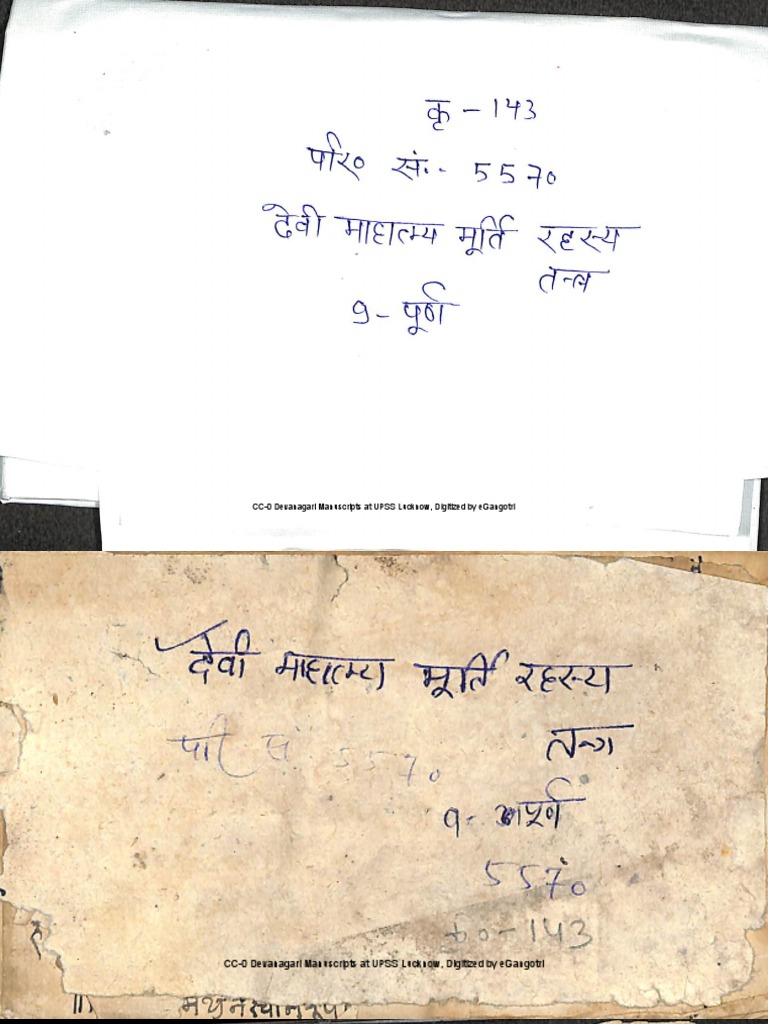 कृ - 143
परि० सं.- 5570
देवी माहात्म्य मूर्ति रहस्य
तन्त्र
9 - पूर्ण
CC-0 Devanagari Manuscripts at UPSS Lucknow, Digitized by eGangotri
देवी माहात्म्य मूर्ति रहस्य
तन्त्र
परि सं 5570
९- अपूर्ण
5570
143
CC-0 Devanagari Manuscripts at UPSS Lucknow, Digitized by eGangotri